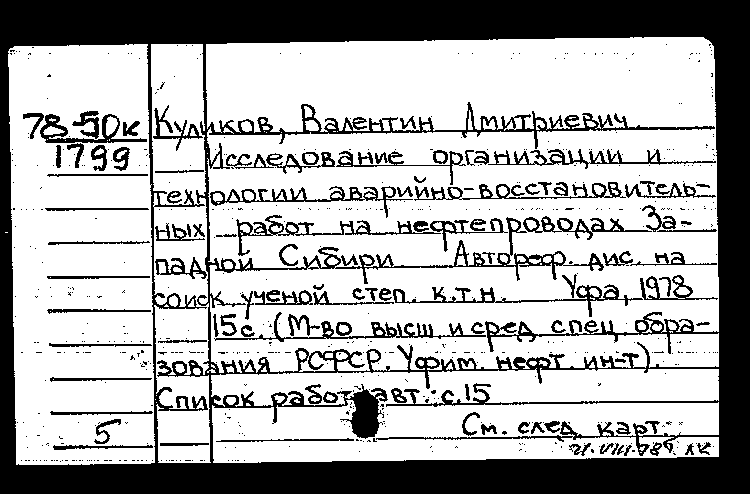 78-50к Куликов, Валентин Дмитриевич
1799 Исследование организации и
технологии аварийно-восстановитель-
ных работ на нефтепроводах За-
падной Сибири Автореф. дис. на
соиск ученой степ. к.т.н. Уфа, 1978
15 с. (М-во высш и сред спец обра-
зования РСФСР. Уфим. нефт. ин-т).
Список работ авт.: с. 15
5 См. след. карт.